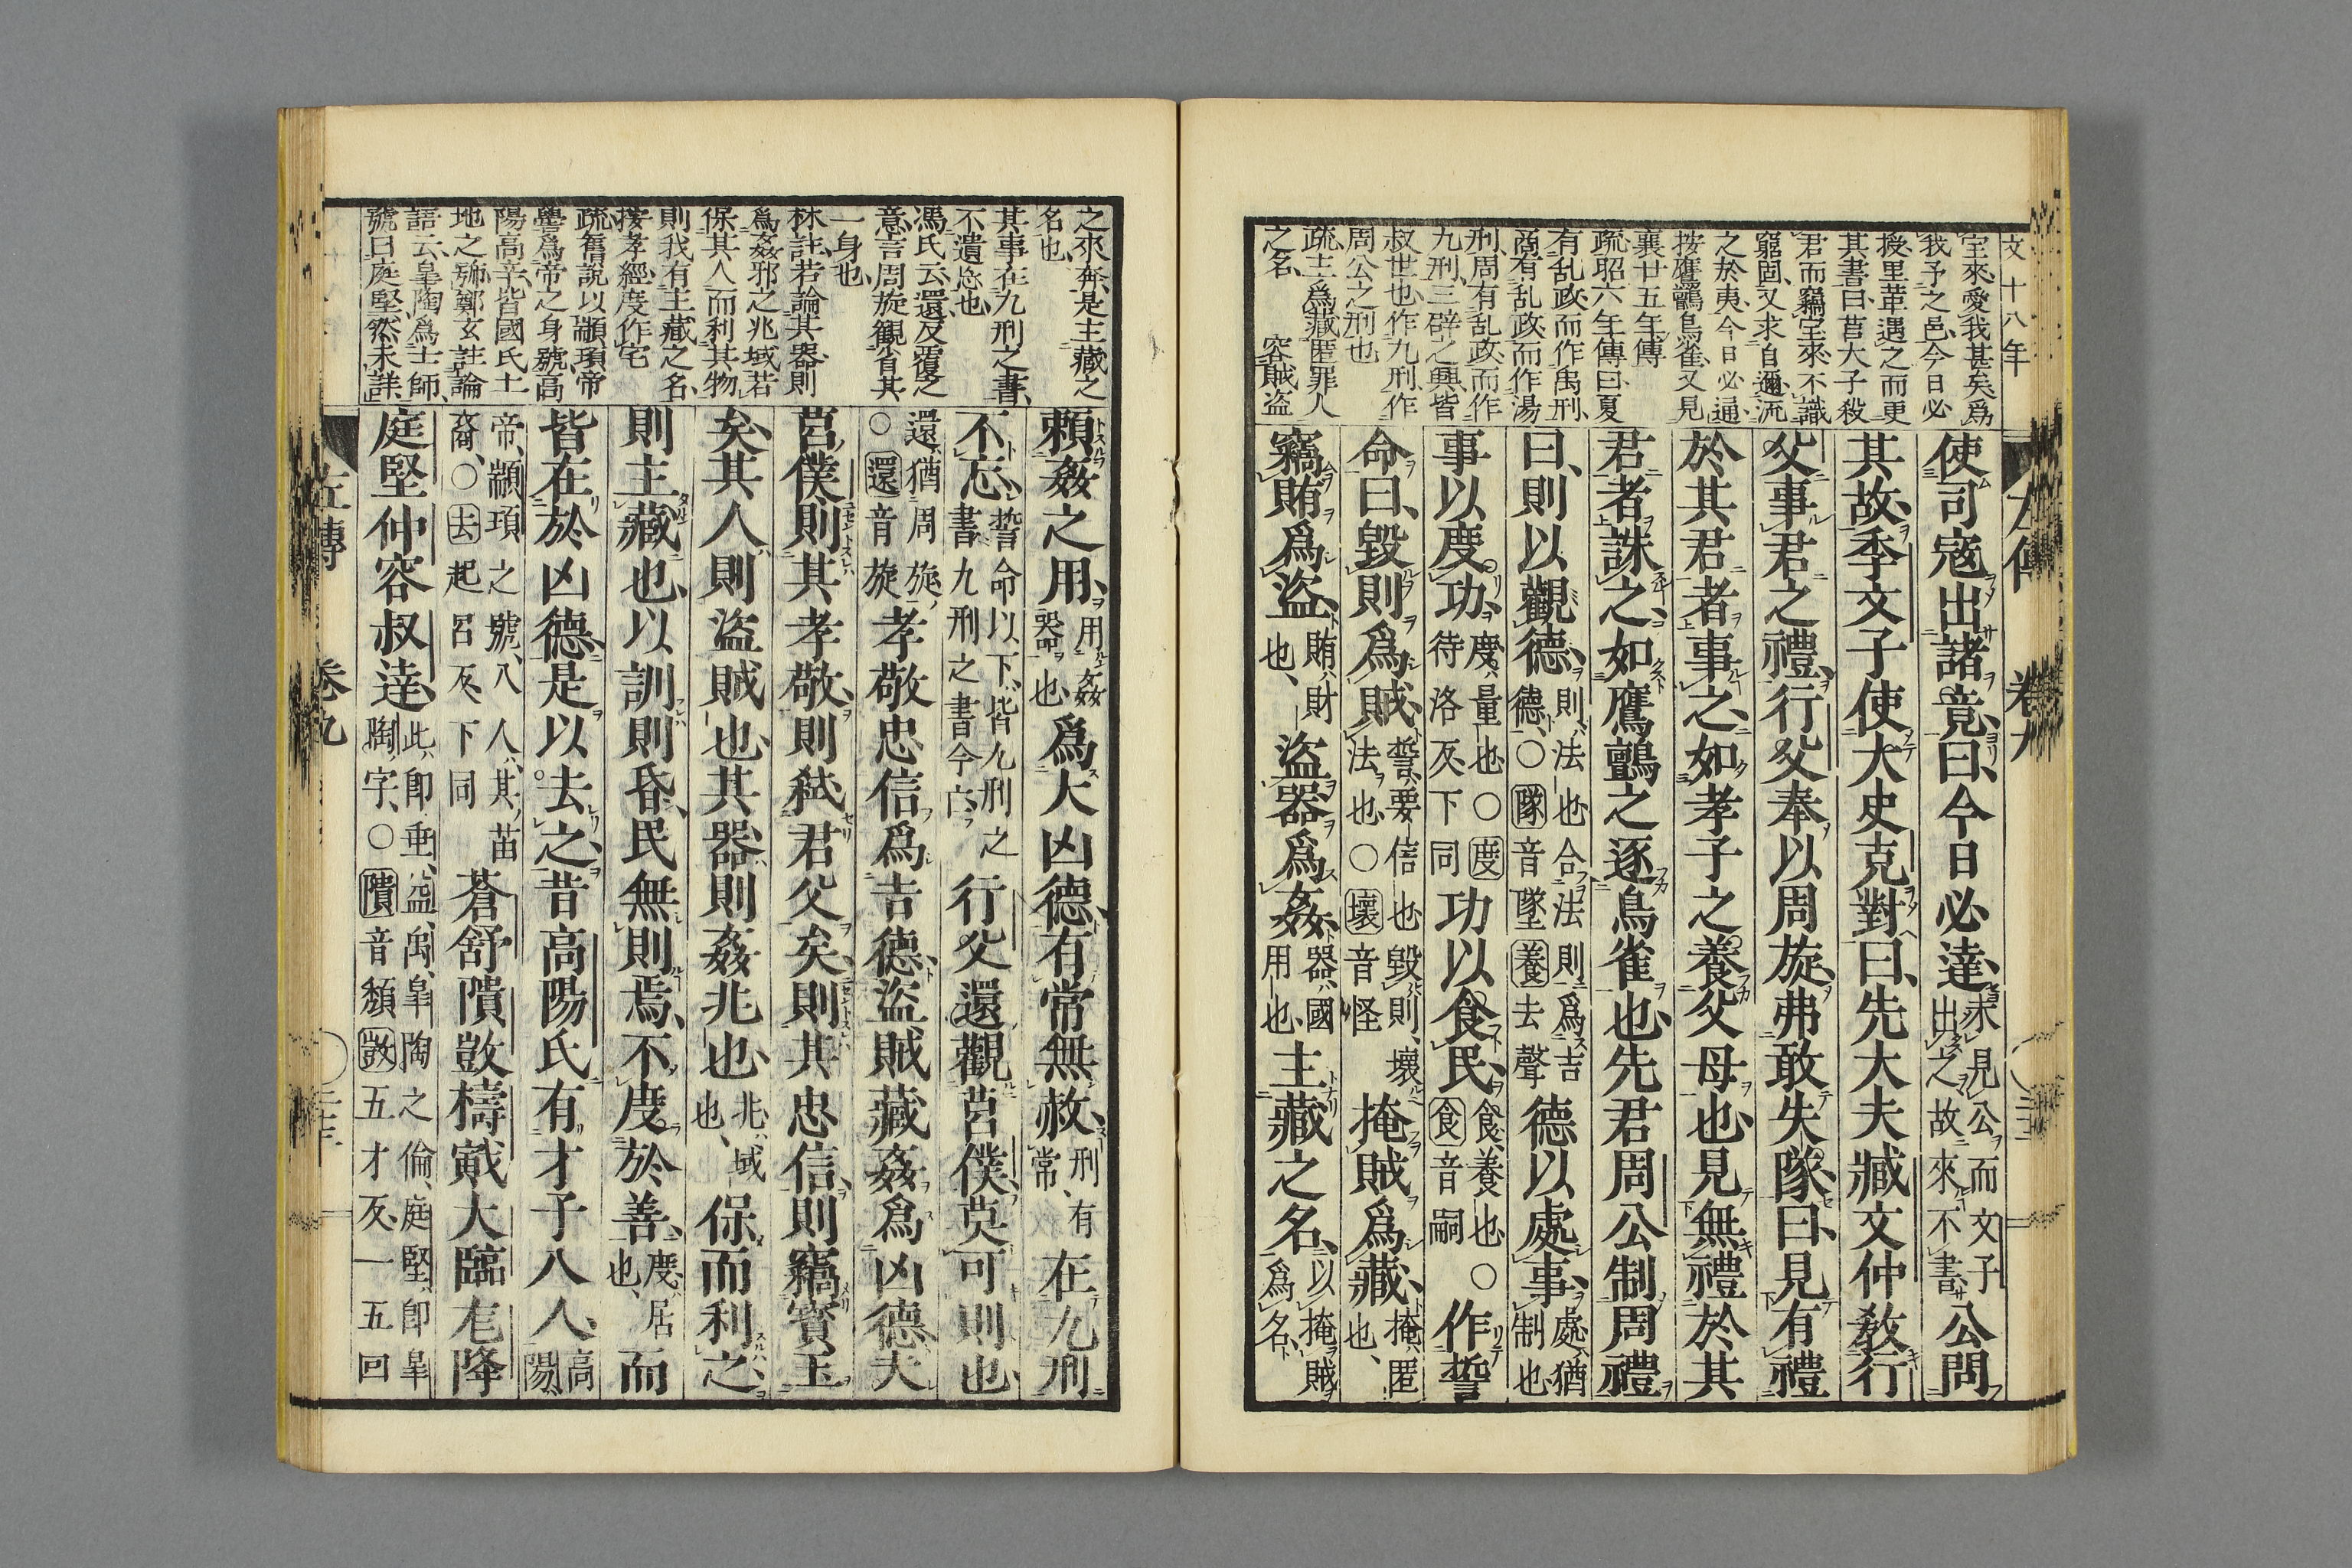 文十八年
宝來愛我甚矣爲
我予之邑今日必
授里革遇之而更
其書曰莒大子殺
君而竊宝來不識
窮固又求自邇流
之於夷今日必通
按鷹鸇鳥雀又見
襄廿五年傳
疏昭六年傳曰夏
有乱政而作禹刑
商有乱政而作湯
刑周有乱政而作
九刑三辟之興皆
叔世也作九刑作
周公之刑也
疏主爲藏匿罪人
之名　容賊盗
使司寇出諸竟曰今日必達未見公而文子出之故來不書公問
其故季文子使大史克對曰先大夫臧文仲教行
父事君之禮行父奉以周旋弗敢失隊曰見有禮
於其君者事之如孝子之養父母也見無禮於其
君者誅之如鷹鸇之逐鳥雀也先君周公制周禮
曰則以觀德則法也合法則爲吉德○隊音墜養去聲德以處事處猶制也
事以度功度量也○度待洛反下同功以食民食養也○食音嗣作誓
命曰毀則爲賊誓要信也毀則壞法也○壞音怪掩賊爲藏掩匿也
竊賄爲盗賄財也盗器爲姦器國用也主藏之名以掩賊爲名
左傳　卷九
之來奔是主藏之
名也
其事在九刑之書
不遺忘也
馮氏云還反覆之
意言周旋觀省其
一身也
林註若論其器則
爲姦邪之兆域若
保其人而利其物
則我有主藏之名
按孝經度作宅
疏舊說以顓頊帝
嚳爲帝之身號高
陽高辛皆國氏土
地之號鄭玄註論
語云皐陶爲士師
號曰庭堅然未詳
賴姦之用用姦器也爲大凶德有常無赦刑有常在九刑
不忘誓命以下皆九刑之書九刑之書今亡行父還觀莒僕莫可則也
還猶周旋○還音旋孝敬忠信爲吉德盗賊藏姦爲凶德夫
莒僕則其孝敬則弑君父矣則其忠信則竊寶玉
矣其人則盗賊也其器則姦兆也兆域也保而利之
則主藏也以訓則昏民無則焉不度於善度居也而
皆在於凶德是以去之昔高陽氏有才子八人高陽
帝顓頊之號八人其苗裔○去起呂反下同蒼舒隤敳檮戭大臨尨降
庭堅仲容叔達此即垂益禹皐陶之倫庭堅即皐陶字○隤音頽敳五才反一五回
左傳　卷九